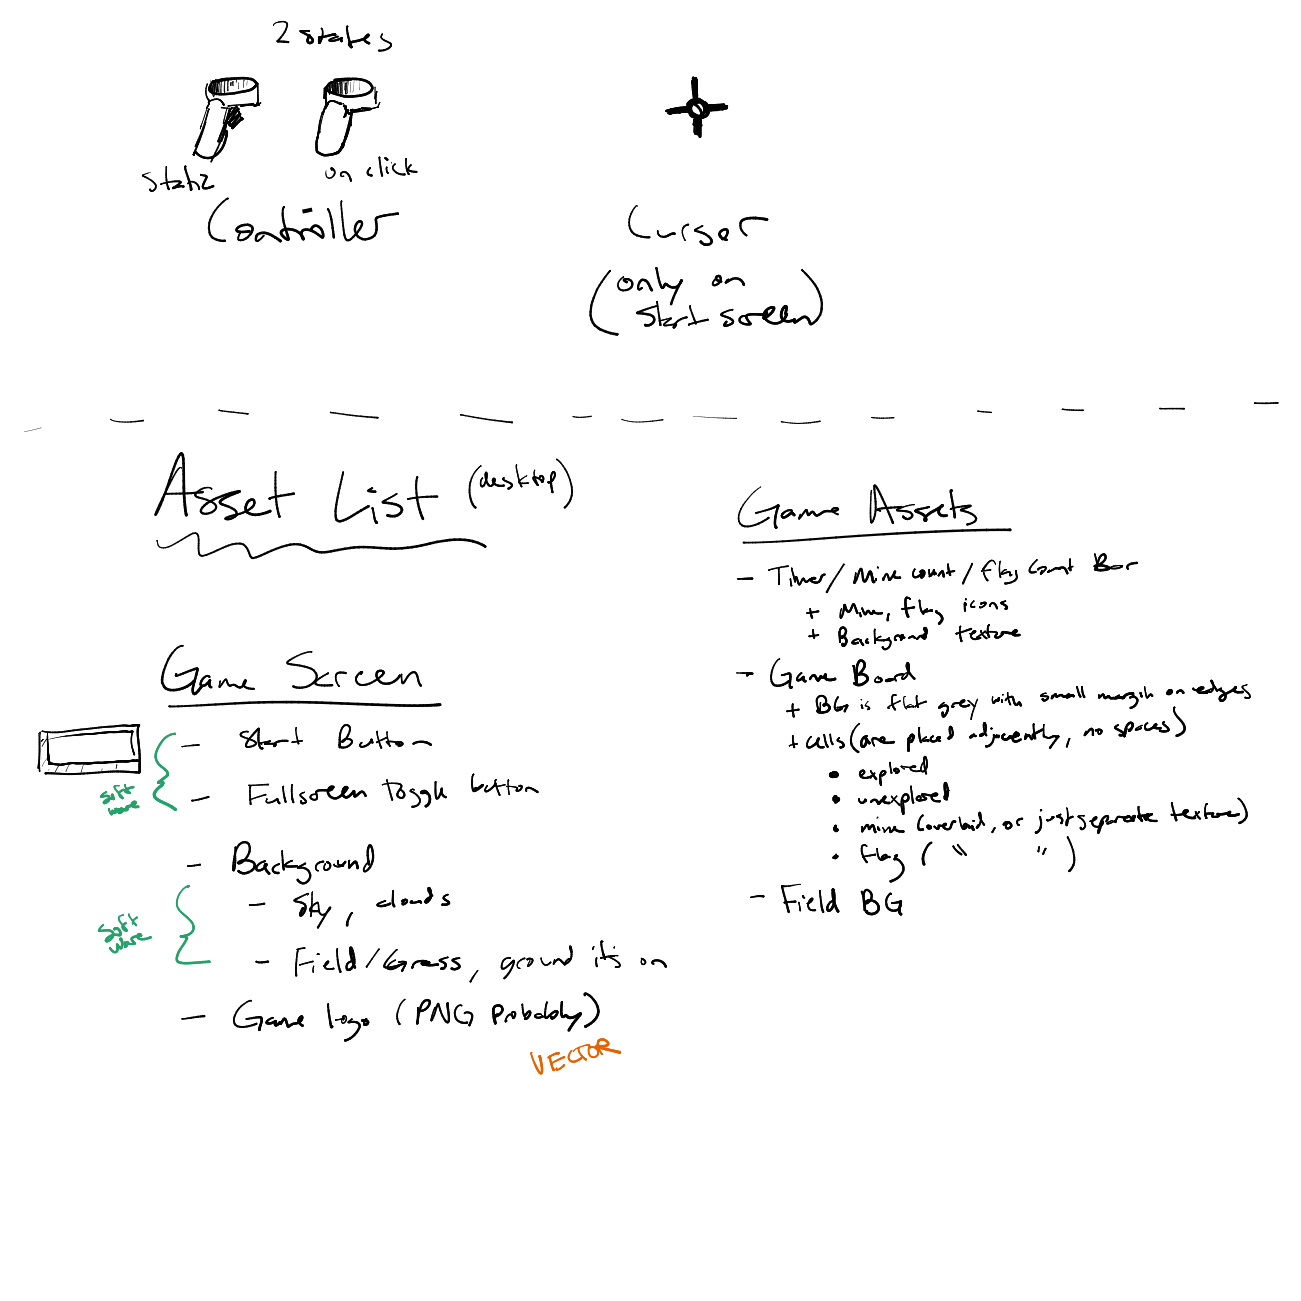 2 states
static
on click
Controller
Cursor
(only on
start screen)
Asset List (desktop)
Game Screen
- Start Button
- Fullscreen toggle button
soft
ware
- Background
- Sky, clouds
soft
ware
- Field/Grass, ground it's on
- Game logo (PNG probably)
VECTOR
Game Assets
- Timer/Mine count/flag count Bar
+ Mine, flag icons
+ Background texture
- Game Board
+ BG is flat grey with small margin on edges
+ cells (are placed adjacently, no spaces)
• explored
• unexplored
• mine (overlaid, or just separate texture)
• flag ( " " )
- Field BG